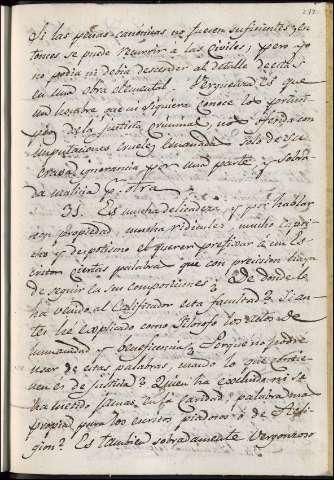 Si las penas canonicas no fuesen suficientes, en-
tonces se puede recurrir á las Civiles; pero yo
no podia ni debia descender al detalle de estas
en una obra elemental. Verguenza es que
un hombre que ni siquiera conoce los princi-
pios de la justicia criminal, nos ofenda con
imputaciones crueles emanadas solo de su
crasa ignorancia por una parte, y sobra-
da malicia pr. otra
31. Es mucha delicadeza, y por hablar
con propiedad mucha ridiculez mucho capri-
cho y despotismo el querer prefixar á un Es-
critor ciertas palabras que con precision haya
de seguir en sus composiciones? De donde le
ha venido al Calificador esta facultad? Si an-
tes he explicado como Filosofo los actos de
humanidad y beneficencia? Porque no podré
usar de estas palabras, quando lo que
es de justicia? Quien ha excluido ni se
ha tenido jamas caridad, palabra mas
propia para los escritos piadosos ó de Reli-
gion? Es tambien sobradamente vergonzoso